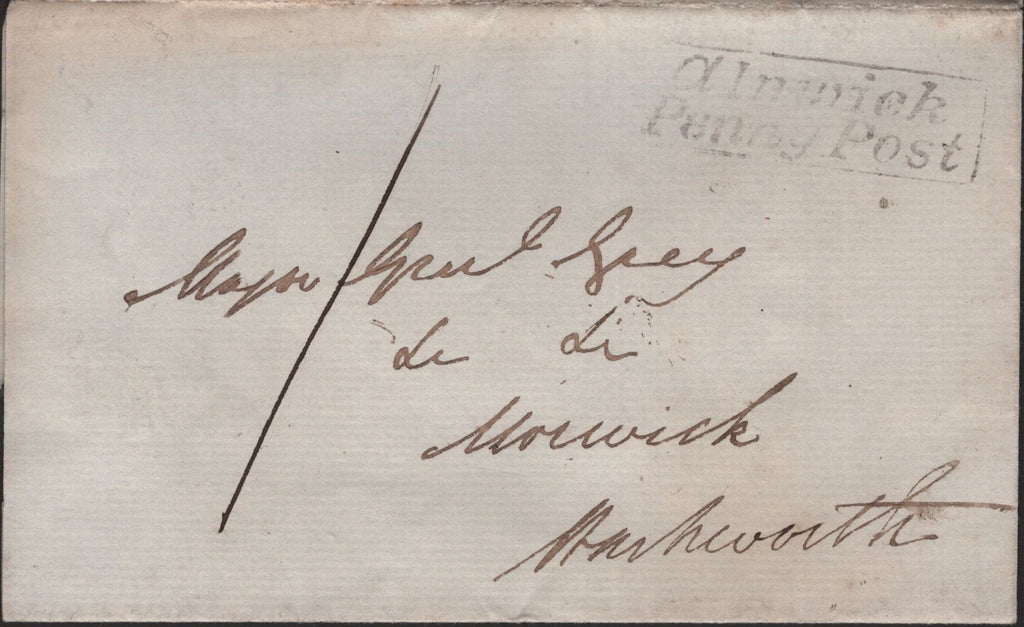 Alnwick
Penny Post
Major Genl Grey
&c &c
Morwick
Warkworth